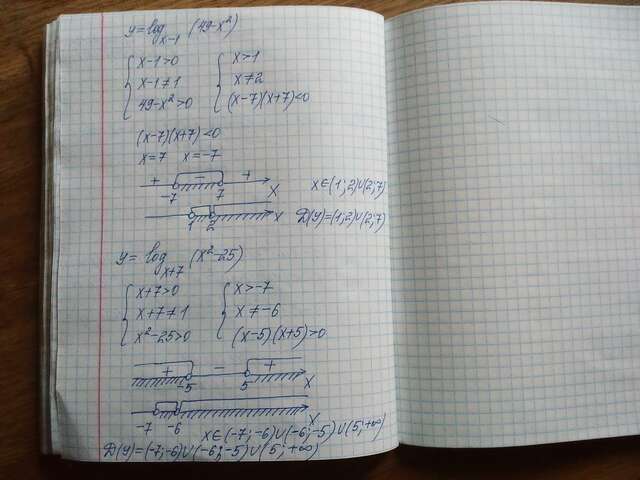 y = log_{x-1} (49-x²)
{ x-1>0 { x>1
x-1≠1 x≠2
49-x²>0 (x-7)(x+7)<0
(x-7)(x+7)<0
x=7 x=-7
+ - +
-7 7 x x∈(1;2)∪(2;7)
1 2 x D(y)=(1;2)∪(2;7)
y = log_{x+7} (x²-25)
{ x+7>0 { x>-7
x+7≠1 x≠-6
x²-25>0 (x-5)(x+5)>0
+ - +
-5 5 x
-7 -6 x
x∈(-7;-6)∪(-6;-5)∪(5;+∞)
D(y)=(-7;-6)∪(-6;-5)∪(5;+∞)